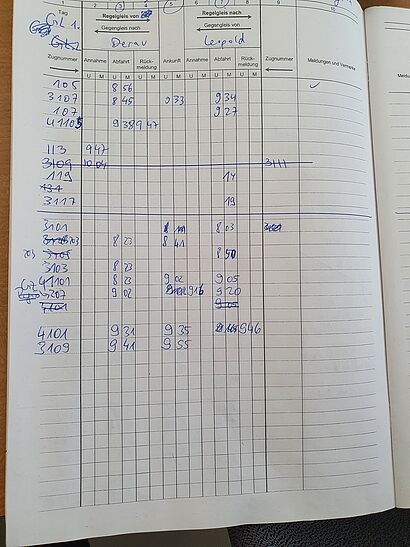 2 3 4 5 6 7 8 9 10
Tag Gl 1. Regelgleis von Regelgleis nach
Gegengleis nach Gegengleis von
Derau Leopold
Zugnummer Annahme Abfahrt Rück-meldung Ankunft Annahme Abfahrt Rück-meldung Zugnummer Meldungen und Vermerke
U M U M U M U M U M U M U M
105 8 56 ✓
3107 8 45 33 9 34
107 9 27
41105 9 38 9 47
113 9 47
3109 10 04 3111
119 14
131
3117 19
3101 8 03
8 23 8 41
8 50
3103 8 23
41101 8 29 9 02 9 05
9 02 9 16 9 20
4101 9 31 9 35 9 46
3109 9 41 9 55